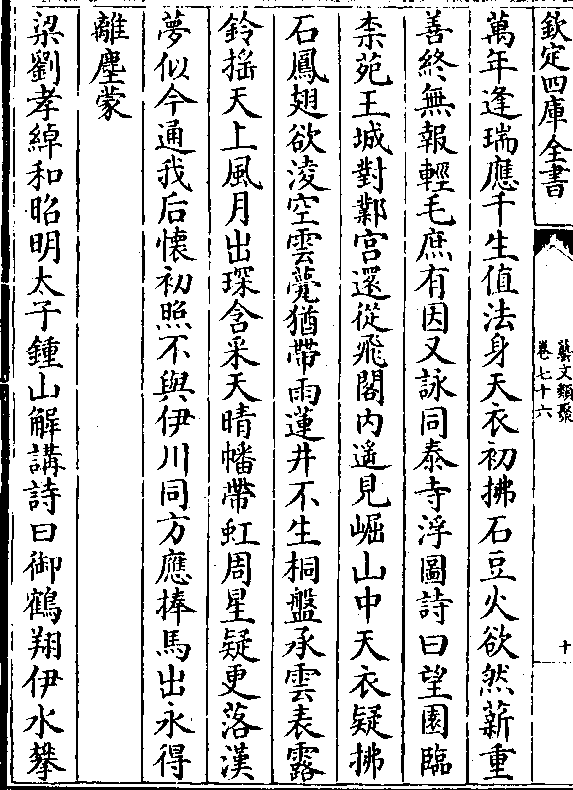 欽定四庫全書
藝文類聚
卷七十六
十
萬年逢瑞應千生值法身天衣初拂石豆火欲然薪重
善終無報輕毛庶有因又詠同泰寺浮圖詩曰望園臨
柰苑王城對鄴宮還從飛閣內遙見崛山中天衣疑拂
石鳳翅欲淩空雲甍猶帶雨蓮井不生桐盤承雲表露
鈴揺天上風月出琛含采天晴幡帶虹周星疑更落漢
夢似今通我后懐初照不與伊川同方應捧馬出永得
離塵蒙
梁劉孝綽和昭明太子鍾山解講詩曰御鶴翔伊水䇿